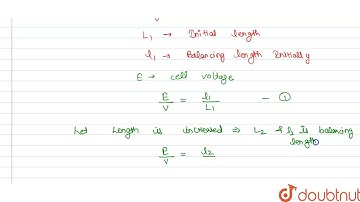 L₁ → Initial length
l₁ → Balancing length Initially
E → cell voltage
E/V = l₁/L₁ — ①
Let Length is increased ⇒ L₂ & l₂ is balancing length
E/V = l₂
doubtnut